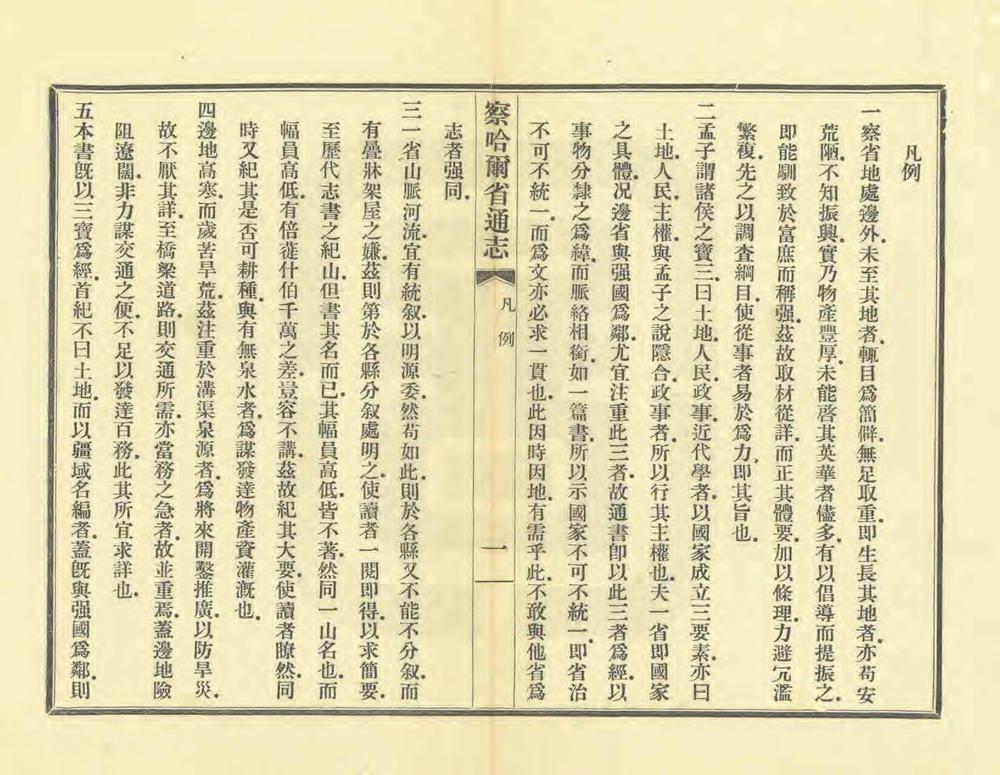 凡例
一察省地處邊外.未至其地者.輒目爲簡僻.無足取重.即生長其地者.亦苟安
荒陋.不知振興.實乃物產豐厚.未能啓其英華者儘多.有以倡導而提振之.
即能馴致於富庶而稱强.茲故取材從詳.而正其體要.加以條理.力避冗濫
繁複.先之以調查綱目.使從事者易於爲力.即其旨也.
二孟子謂諸侯之寶三.曰土地.人民.政事.近代學者.以國家成立三要素.亦曰
土地.人民.主權.與孟子之說隱合.政事者.所以行其主權也.夫一省即國家
之具體.况邊省與强國爲鄰.尤宜注重此三者.故通書卽以此三者爲經.以
事物分隸之爲緯.而脈絡相銜.如一篇書.所以示國家不可不統一.即省治
不可不統一.而爲文亦必求一貫也.此因時因地.有需乎此.不敢與他省爲
志者强同.
察哈爾省通志
凡例
一
三一省山脈河流.宜有統叙.以明源委.然苟如此.則於各縣又不能不分叙.而
有疊牀架屋之嫌.茲則第於各縣分叙處明之.使讀者一閱即得.以求簡要.
至歷代志書之紀山.但書其名而已.其幅員高低.皆不著.然同一山名也.而
幅員高低.有倍蓰什伯千萬之差.豈容不講.茲故紀其大要.使讀者瞭然.同
時又紀其是否可耕種.與有無泉水者.爲謀發達物產資灌漑也.
四邊地高寒.而歲苦旱荒.茲注重於溝渠泉源者.爲將來開鑿推廣.以防旱災.
故不厭其詳.至橋梁道路.則交通所需.亦當務之急者.故並重焉.蓋邊地險
阻遼闊.非力謀交通之便.不足以發達百務.此其所宜求詳也.
五本書旣以三寶爲經.首紀不曰土地.而以疆域名編者.蓋旣與强國爲鄰.則